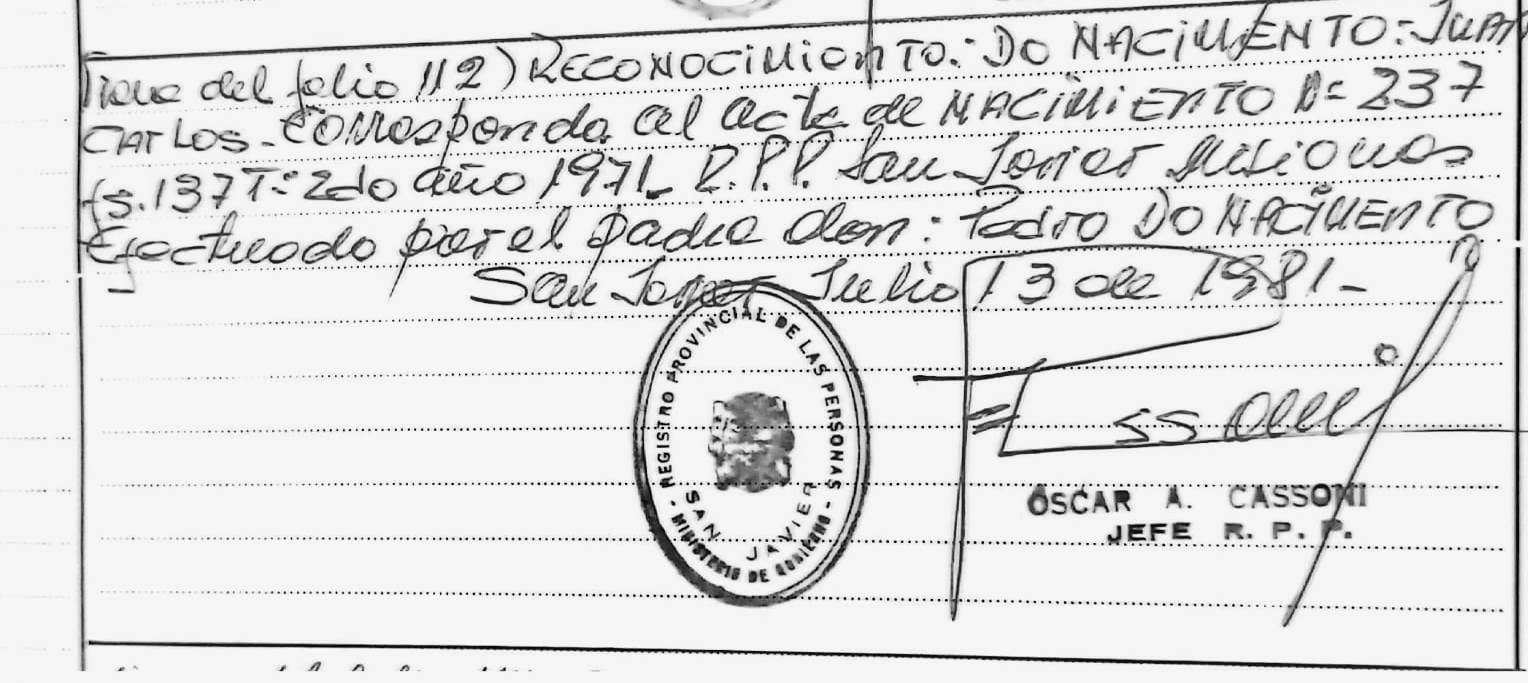 Viene del folio 112) RECONOCIMIENTO: DO NACIMENTO: JUAN
CARLOS. Corresponde al acta de NACIMIENTO Nº 237
fs. 137 Tº 2do año 1971. R.P.P. San Javier Misiones
Efectuado por el padre don: Pedro DO NACIMENTO
San Javier Julio 13 de 1981-
REGISTRO PROVINCIAL DE LAS PERSONAS
SAN JAVIER
- MINISTERIO DE GOBIERNO -
OSCAR A. CASSONI
JEFE R. P. P.